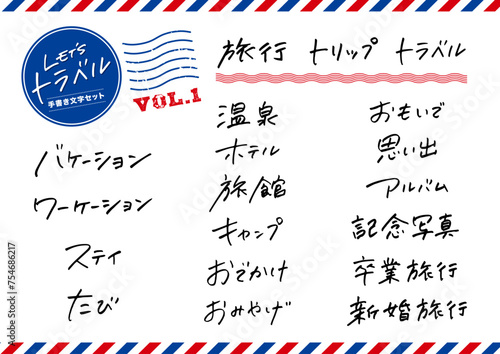 LET'S
トラベル
手書き文字セット
VOL.1
旅行 トリップ トラベル
バケーション
ワーケーション
ステイ
たび
温泉
ホテル
旅館
キャンプ
おでかけ
おみやげ
おもいで
思い出
アルバム
記念写真
卒業旅行
新婚旅行
Adobe Stock | #754686217